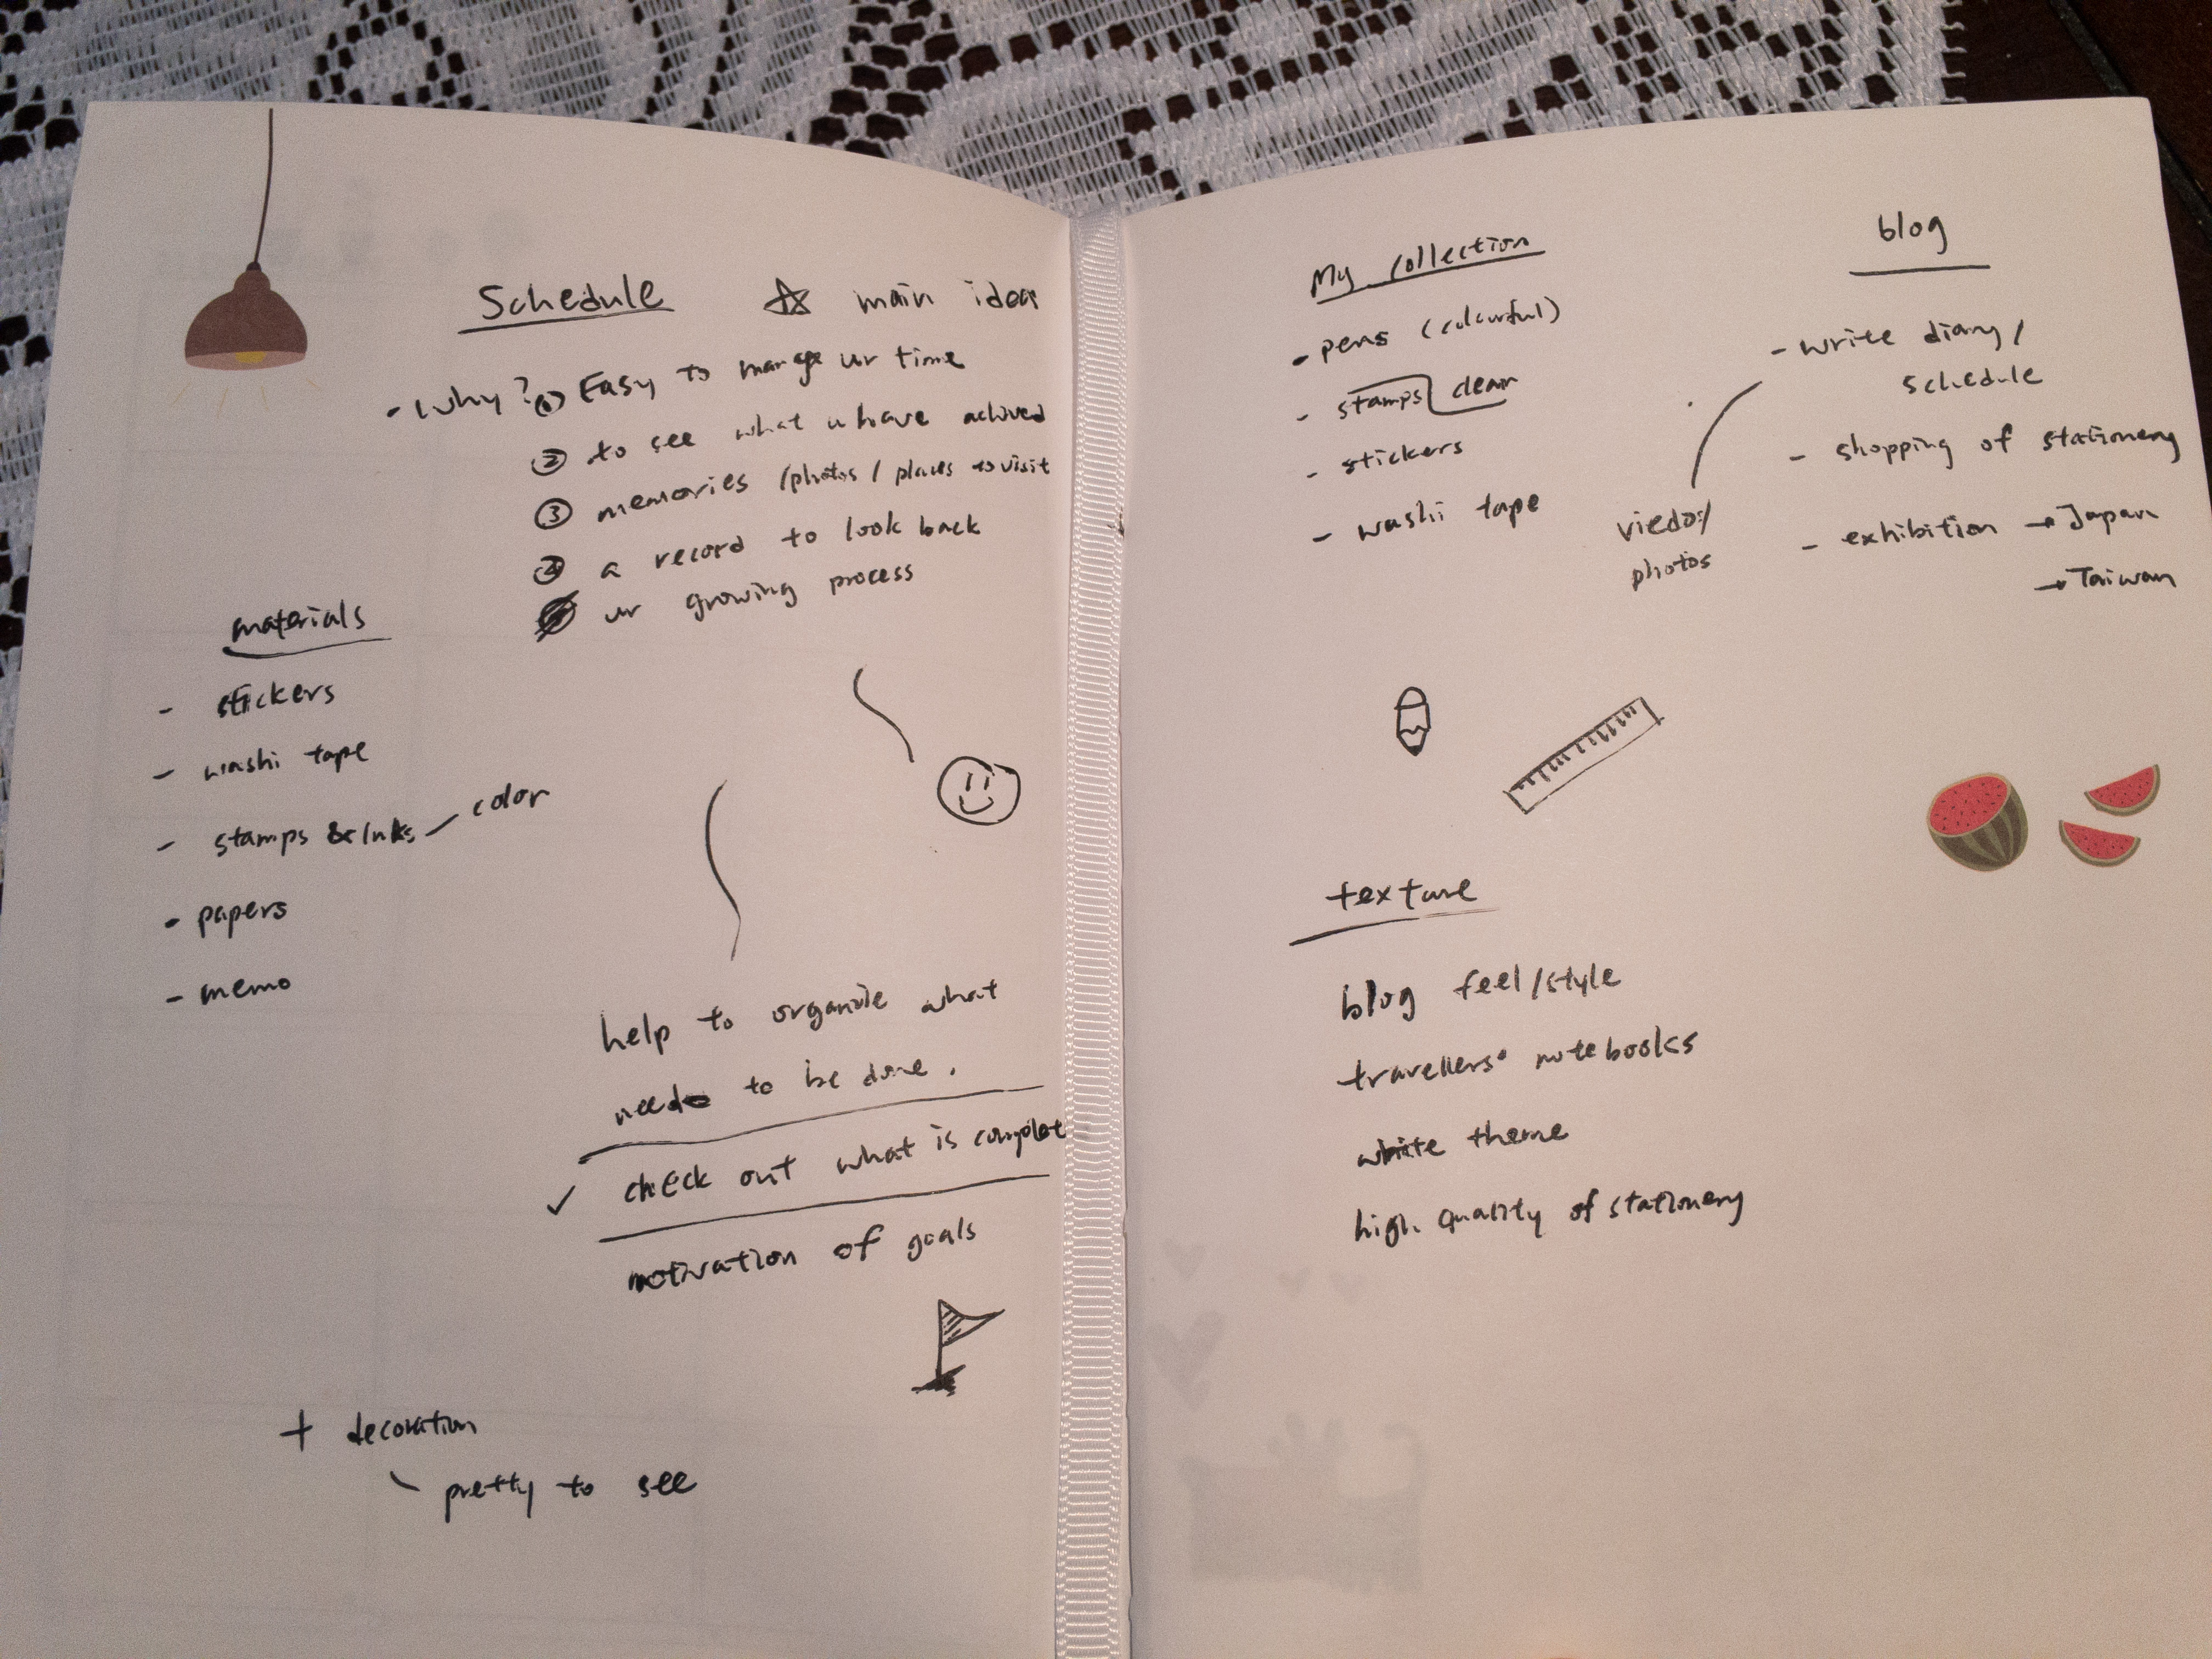 Schedule ☆ main idea
- Why? ① Easy to manage ur time
② to see what u have achived
③ memories /photos / places to visit
④ a record to look back
ur growing process
materials
- stickers
- washi tape
- stamps & Inks — color
- papers
- memo
help to organize what
need to be done.
✓ check out what is complet
motivation of goals
+ decoration
pretty to see
My collection
- pens (colourful)
- stamps clear
- stickers
- washi tape
blog
- write diary/
schedule
- shopping of stationery
- exhibition → Japan
→ Taiwan
viedos/
photos
texture
blog feel/style
travellers' notebooks
white theme
high quality of stationery